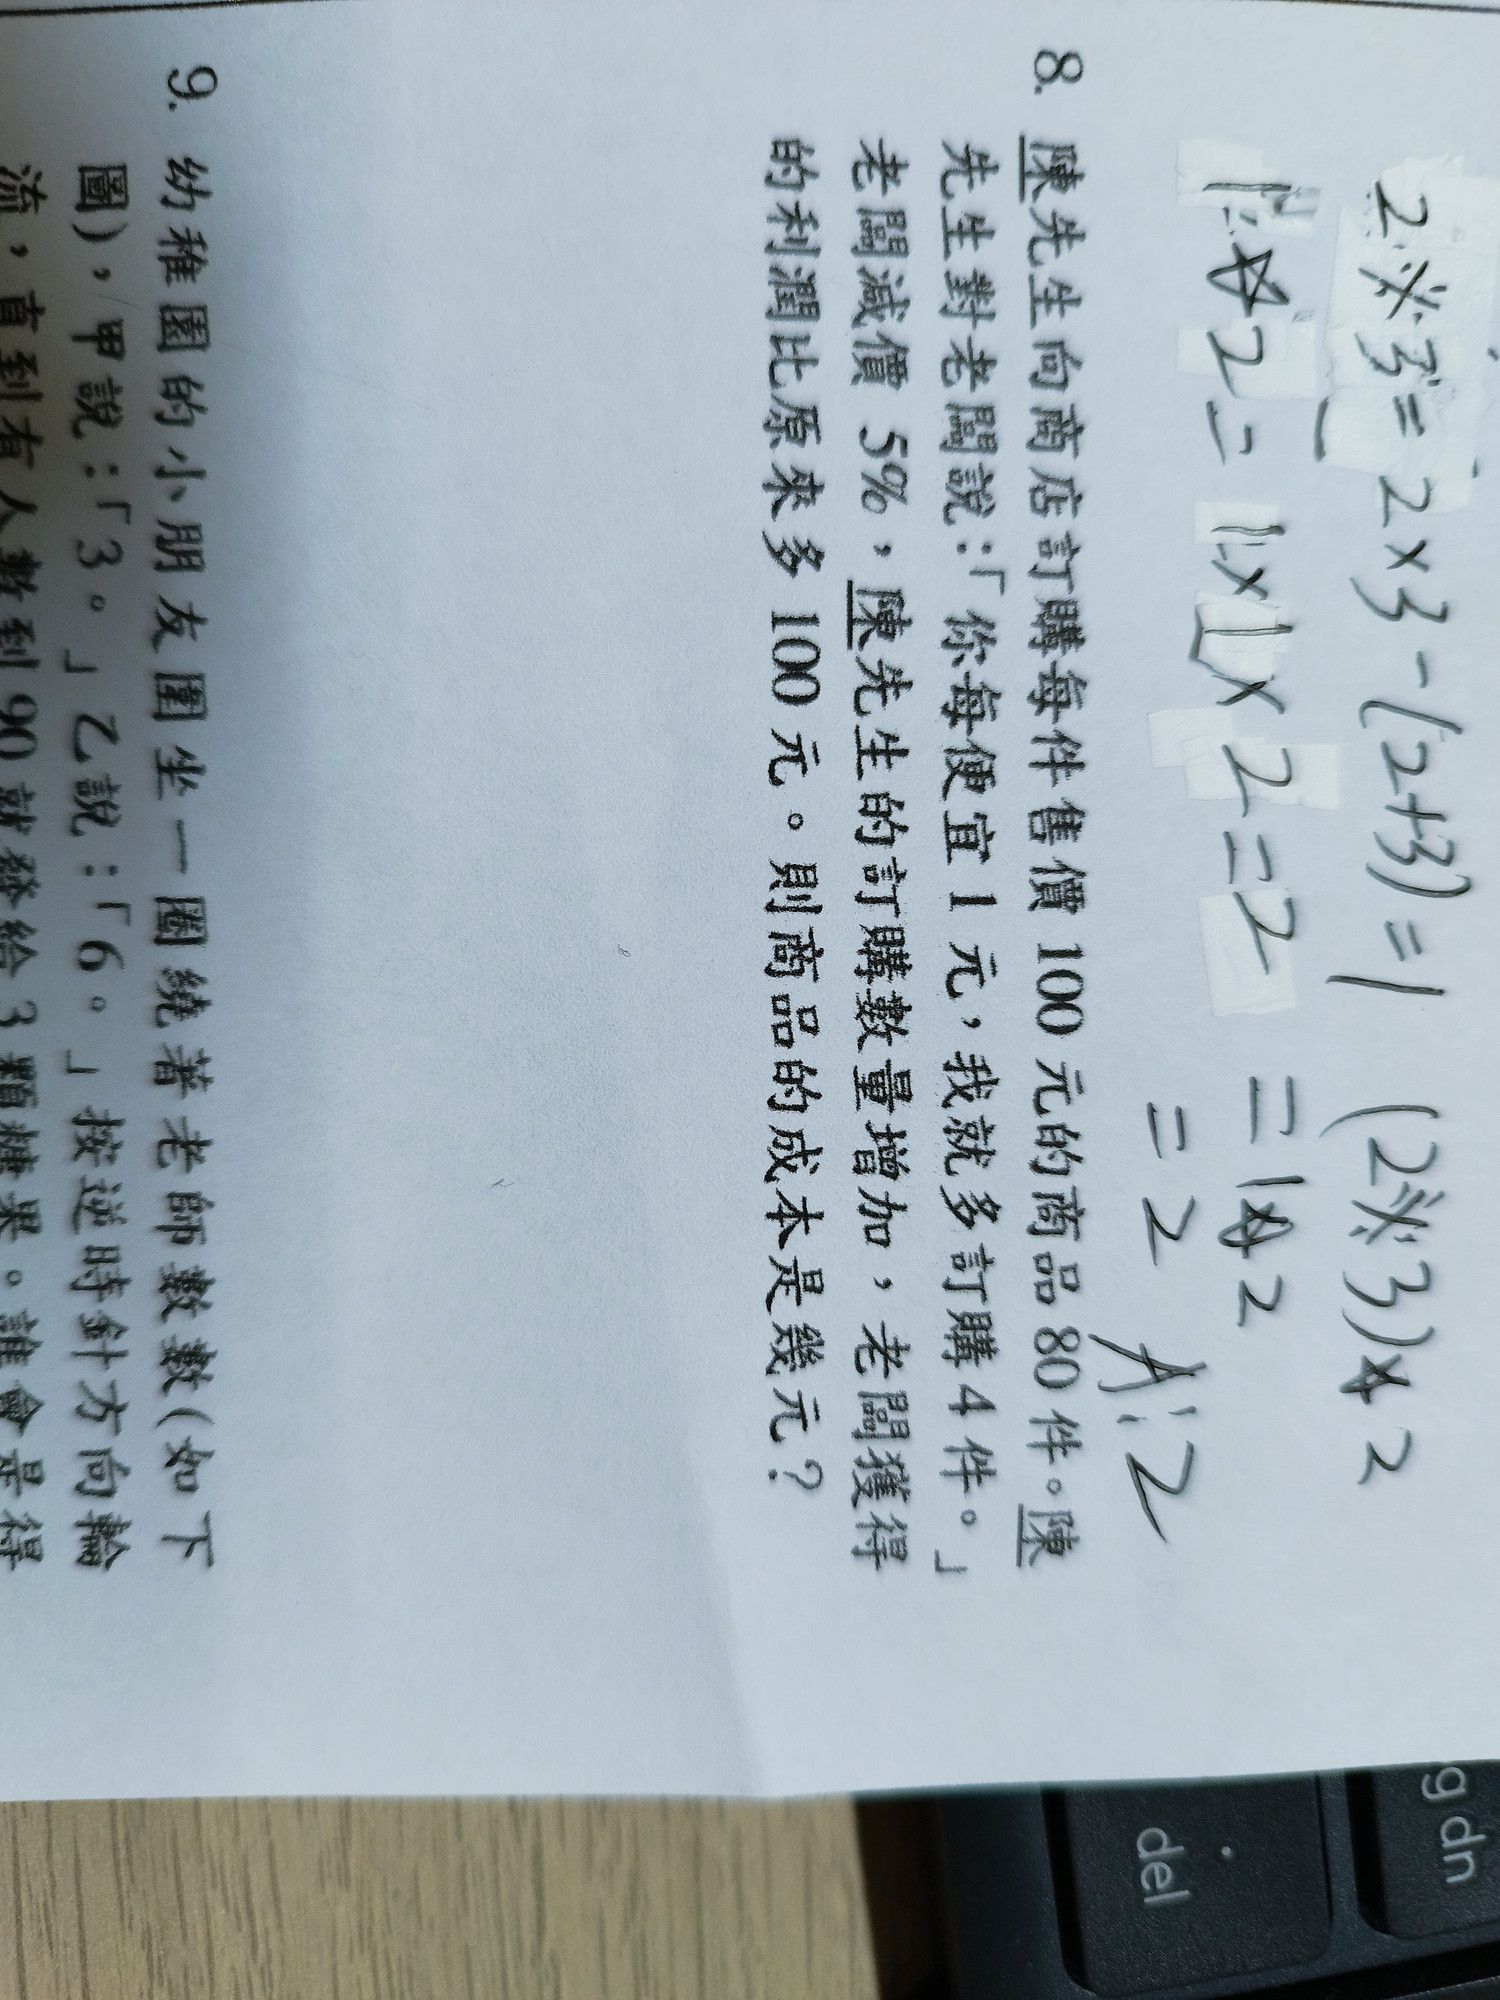 2※3=2×3-(2+3)=1 (2※3)☆2
1☆2=1×1×2=2 =1☆2
=2 A:2
8. 陳先生向商店訂購每件售價 100 元的商品 80 件。陳
先生對老闆說:「你每便宜 1 元,我就多訂購 4 件。」
老闆減價 5%,陳先生的訂購數量增加,老闆獲得
的利潤比原來多 100 元。則商品的成本是幾元?
9. 幼稚園的小朋友圍坐一圈繞著老師數數(如下
圖),甲說:「3。」乙說:「6。」按逆時針方向輪
流,直到有人數到 90 就發給 3 顆糖果。誰會是得
g dn
del